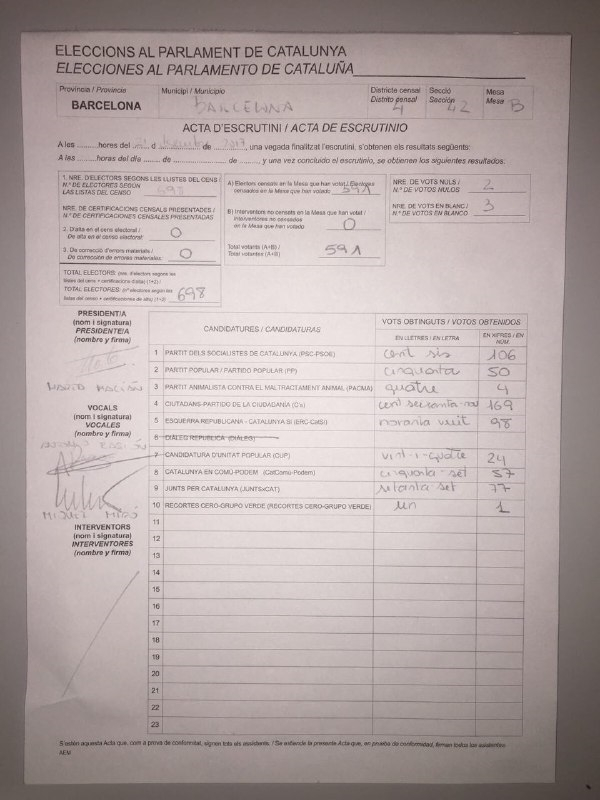 ELECCIONS AL PARLAMENT DE CATALUNYA
ELECCIONES AL PARLAMENTO DE CATALUÑA
Província / Provincia
BARCELONA
Municipi / Municipio
BARCELONA
Districte censal
Distrito censal
4
Secció
Sección
42
Mesa
Mesa
B
ACTA D'ESCRUTINI / ACTA DE ESCRUTINIO
A les ......... hores del 21 d de 2017, una vegada finalitzat l'escrutini, s'obtenen els resultats següents:
A las ......... horas del día ...... de ............ de ......, y una vez concluido el escrutinio, se obtienen los siguientes resultados:
1. NRE. D'ELECTORS SEGONS LES LLISTES DEL CENS /
N.º DE ELECTORES SEGÚN
LAS LISTAS DEL CENSO 698
NRE. DE CERTIFICACIONS CENSALS PRESENTADES /
N.º DE CERTIFICACIONES CENSALES PRESENTADAS
2. D'alta en el cens electoral /
De alta en el censo electoral: 0
3. De correcció d'errors materials /
De corrección de errores materiales: 0
TOTAL ELECTORS: (nre. d'electors segons les
llistes del cens + certificacions d'alta) (1+2) /
TOTAL ELECTORES: (n.º electores según las
listas del censo + certificaciones de alta) (1+2) 698
A) Electors censats en la Mesa que han votat / Electores
censados en la Mesa que han votado 591
B) Interventors no censats en la Mesa que han votat /
Interventores no censados
en la Mesa que han votado 0
Total votants (A+B) /
Total votantes (A+B) 591
NRE. DE VOTS NULS /
N.º DE VOTOS NULOS 2
NRE. DE VOTS EN BLANC /
N.º DE VOTOS EN BLANCO 3
PRESIDENT/A
(nom i signatura)
PRESIDENTE/A
(nombre y firma)
VOCALS
(nom i signatura)
VOCALES
(nombre y firma)
MIQUEL MIRÓ
INTERVENTORS
(nom i signatura)
INTERVENTORES
(nombre y firma)
CANDIDATURES / CANDIDATURAS
VOTS OBTINGUTS / VOTOS OBTENIDOS
EN LLETRES / EN LETRA
EN XIFRES / EN NÚM.
1 PARTIT DELS SOCIALISTES DE CATALUNYA (PSC-PSOE) cent sis 106
2 PARTIT POPULAR / PARTIDO POPULAR (PP) cinquanta 50
3 PARTIT ANIMALISTA CONTRA EL MALTRACTAMENT ANIMAL (PACMA) quatre 4
4 CIUTADANS-PARTIDO DE LA CIUDADANÍA (C's) cent seixanta-nou 169
5 ESQUERRA REPUBLICANA - CATALUNYA SÍ (ERC-CatSí) noranta vuit 98
6 DIÀLEG REPUBLICÀ (DIÀLEG)
7 CANDIDATURA D'UNITAT POPULAR (CUP) vint-i-quatre 24
8 CATALUNYA EN COMÚ-PODEM (CatComú-Podem) cinquanta-set 57
9 JUNTS PER CATALUNYA (JUNTSxCAT) setanta set 77
10 RECORTES CERO-GRUPO VERDE (RECORTES CERO-GRUPO VERDE) un 1
11
12
13
14
15
16
17
18
19
20
21
22
23
S'estén aquesta Acta que, com a prova de conformitat, signen tots els assistents. / Se extiende la presente Acta que, en prueba de conformidad, firman todos los asistentes.
AEM